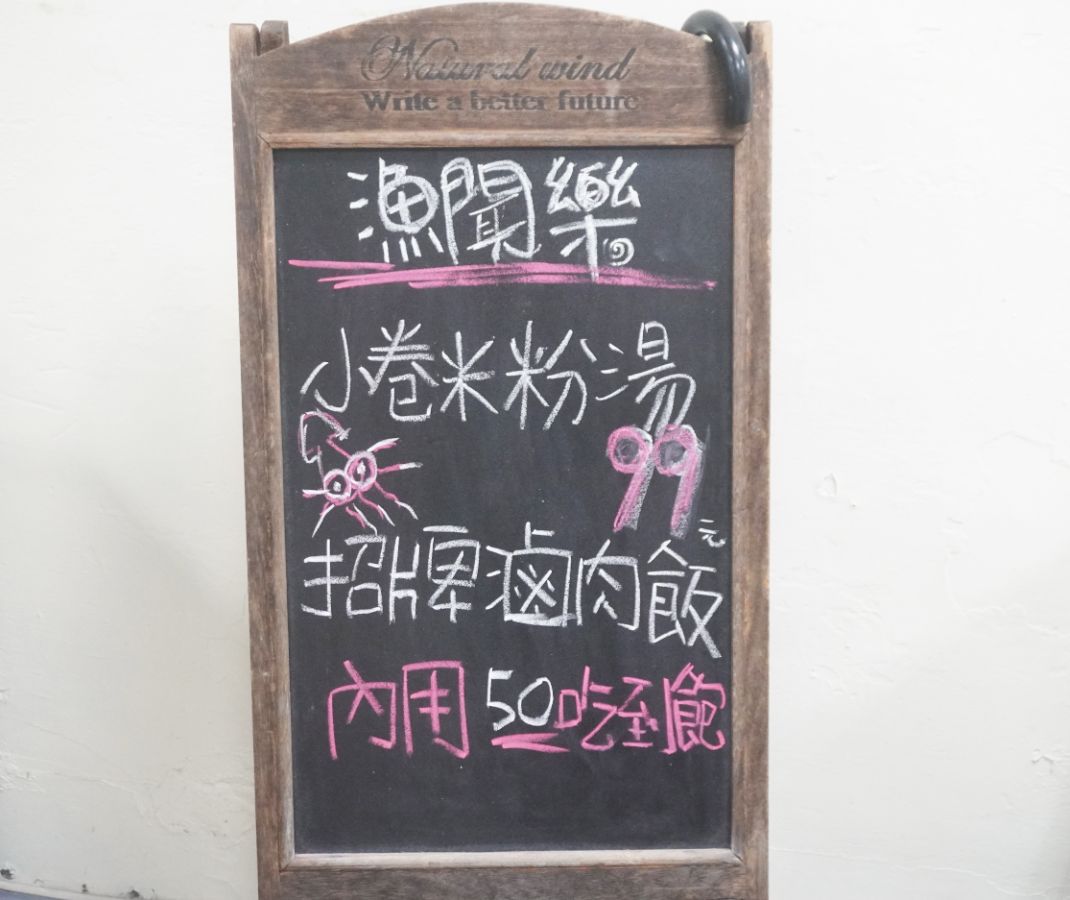 Natural wind
Write a better future
漁聞樂
小卷米粉湯
99元
招牌滷肉飯
內用50吃到飽